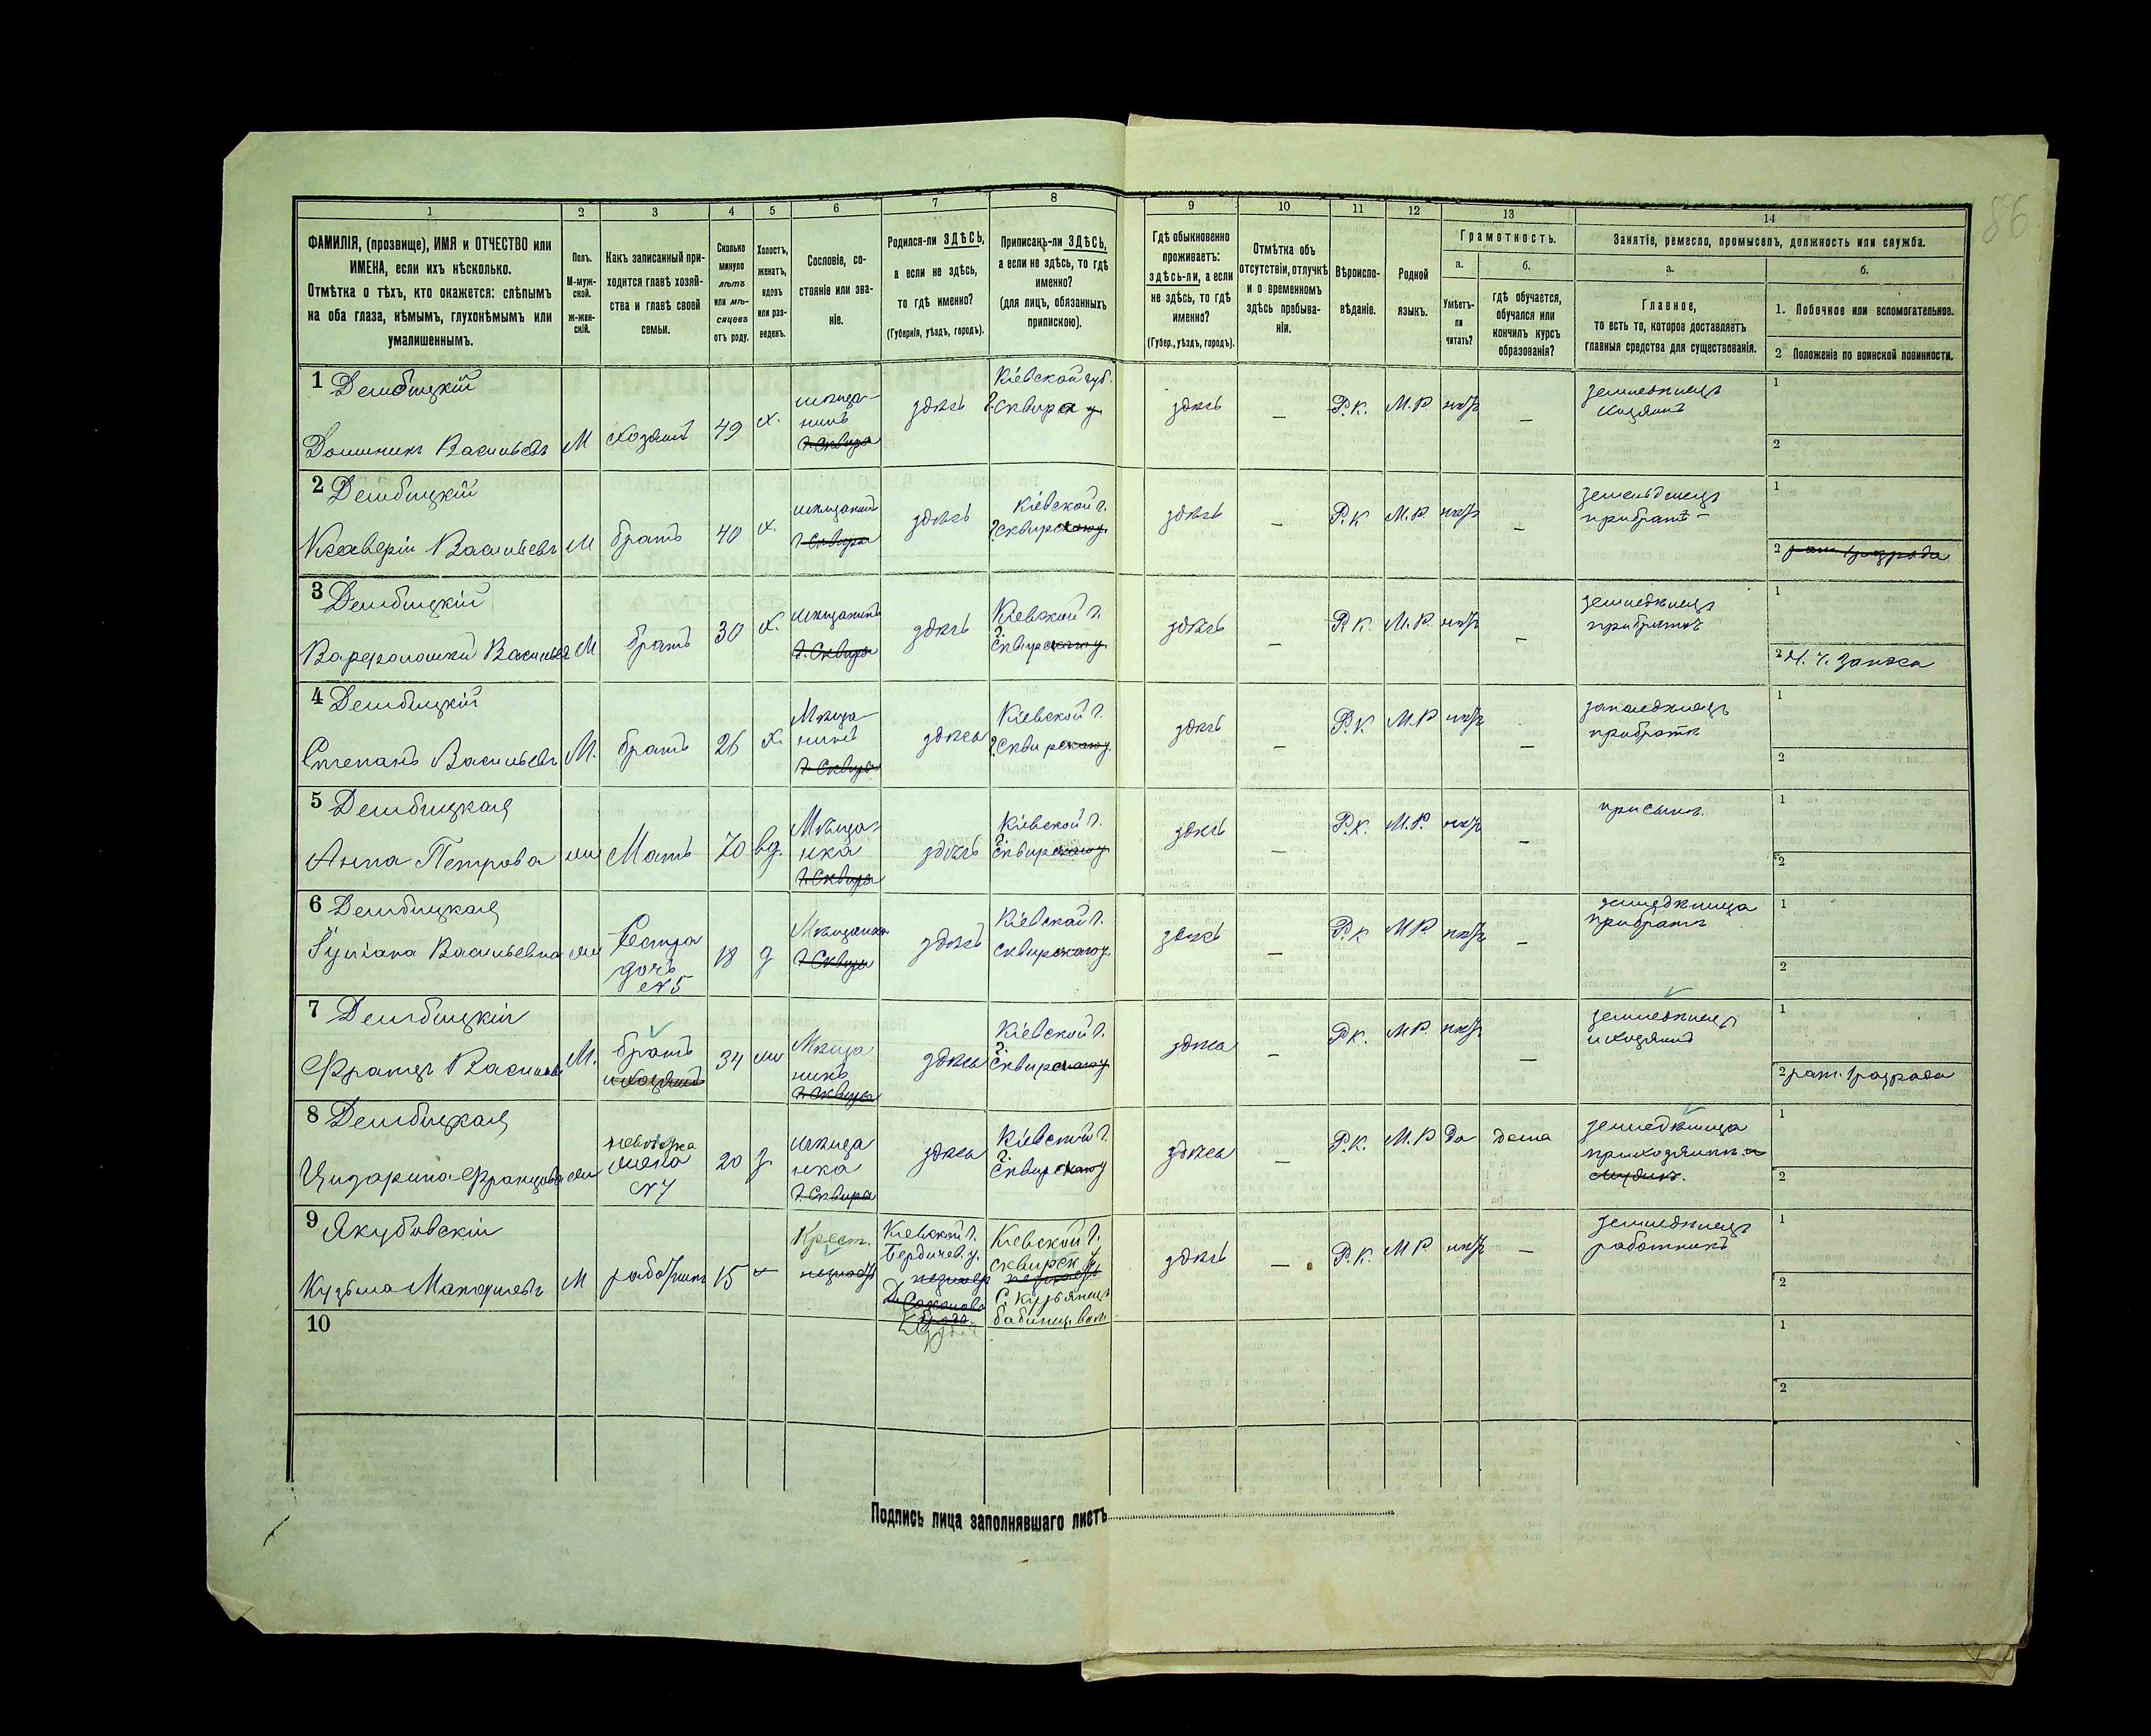 86
1 2 3 4 5 6 7 8 9 10 11 12 13 14
ФАМИЛІЯ, (прозвище), ИМЯ и ОТЧЕСТВО или
ИМЕНА, если ихъ нѣсколько.
Отмѣтка о тѣхъ, кто окажется: слѣпымъ
на оба глаза, нѣмымъ, глухонѣмымъ или
умалишеннымъ.
Полъ.
М-муж-
ской.
ж-жен-
скій.
Какъ записанный при-
ходится главѣ хозяй-
ства и главѣ своей
семьи.
Сколько
минуло
лѣтъ
или мѣ-
сяцевъ
отъ роду.
Холостъ,
женатъ,
вдовъ
или раз-
веденъ.
Сословіе, со-
стояніе или зва-
ніе.
Родился-ли ЗДѢСЬ,
а если не здѣсь,
то гдѣ именно?
(Губернія, уѣздъ, городъ).
Приписанъ-ли ЗДѢСЬ,
а если не здѣсь, то гдѣ
именно?
(для лицъ, обязанныхъ
припискою).
Гдѣ обыкновенно
проживаетъ:
здѣсь-ли, а если
не здѣсь, то гдѣ
именно?
(Губер., уѣздъ, городъ).
Отмѣтка объ
отсутствіи, отлучкѣ
и о временномъ
здѣсь пребыва-
ніи.
Вѣроиспо-
вѣданіе.
Родной
языкъ.
Грамотность.
а.
Умѣетъ-
ли
читать?
б.
гдѣ обучается,
обучался или
кончилъ курсъ
образованія?
Занятіе, ремесло, промыселъ, должность или служба.
а.
Главное,
то есть то, которое доставляетъ
главныя средства для существованія.
б.
1. Побочное или вспомогательное.
2 Положеніе по воинской повинности.
1 Дембицкій
Доминикъ Васильевъ
М
хозяинъ
49
х.
мѣща-
нинъ
г. Сквира
здѣсь
Кіевской губ.
г. Сквира у
здѣсь
—
Р.К.
М.Р.
нѣтъ
—
земледѣлецъ
хозяинъ
1
2
2 Дембицкій
Ксаверій Васильевъ
М
братъ
40
х.
мѣщанинъ
г. Сквиры
здѣсь
Кіевской г.
г. Сквирскаго у.
здѣсь
—
Р.К
М.Р.
нѣтъ
—
земледѣлецъ
при братѣ —
1
2 рат. 1 разряда
3 Дембицкій
М
братъ
30
х.
мѣщанинъ
г. Сквира
здѣсь
Кіевской г.
г.
Сквирскаго у
здѣсь
—
Р.К.
М.Р.
нѣтъ
—
земледѣлецъ
при братѣ
1
2 запаса
4 Дембицкій
Степанъ Васильевъ
М.
братъ
26
х.
Мѣща-
нинъ
г. Сквира
здѣсь
Кіевской г.
г. Сквирскаго у.
здѣсь
—
Р.К
М.Р
нѣтъ
—
земледѣлецъ
при братѣ
1
2
5 Дембицкая
Анна Петрова
ж
Мать
70
вд.
Мѣща-
нка
г. Сквира
здѣсь
Кіевской г.
г.
Сквирскаго у
здѣсь
—
Р.К.
М.Р.
нѣтъ
—
при сынѣ.
1
2
6 Дембицкая
Юліана Васильевна
ж
Сестра
дочь
№5
18
д
Мѣщанка
г. Сквиры
здѣсь
Кіевской г.
Сквирскаго у.
здѣсь
—
Р.К
М Р.
нѣтъ
—
земледѣлица
при братѣ
1
2
7 Дембицкій
Францъ Васильевъ
М.
братъ
и хозяинъ
34
ж
Мѣща
нинъ
г. Сквира
здѣсь
Кіевской г.
г.
Сквирскаго у
здѣсь
—
Р.К.
М.Р.
нѣтъ
—
земледѣлецъ
и хозяинъ
1
2 рат. 1 разряда
8 Дембицкая
Цизарина Францовна
ж
невѣстка
жена
№7
20
з.
мѣща
нка
г. Сквира
здѣсь
Кіевской г.
г.
Сквирскаго у
здѣсь
—
Р.К.
М.Р
Да
дома
земледѣлица
при хозяинѣ и
1
2
9 Якубовскій
Кузьма Матфіевъ
М
работникъ
15
х
Крест.
неизвѣст
Кіевской г.
Бердичев. у.
Кіевской г.
Сквирск. у.
бабинц. вол
здѣсь
—
Р.К.
М Р.
нѣтъ
—
земледѣлецъ
работникъ
1
2
10
1
2
Подпись лица заполнявшаго листъ